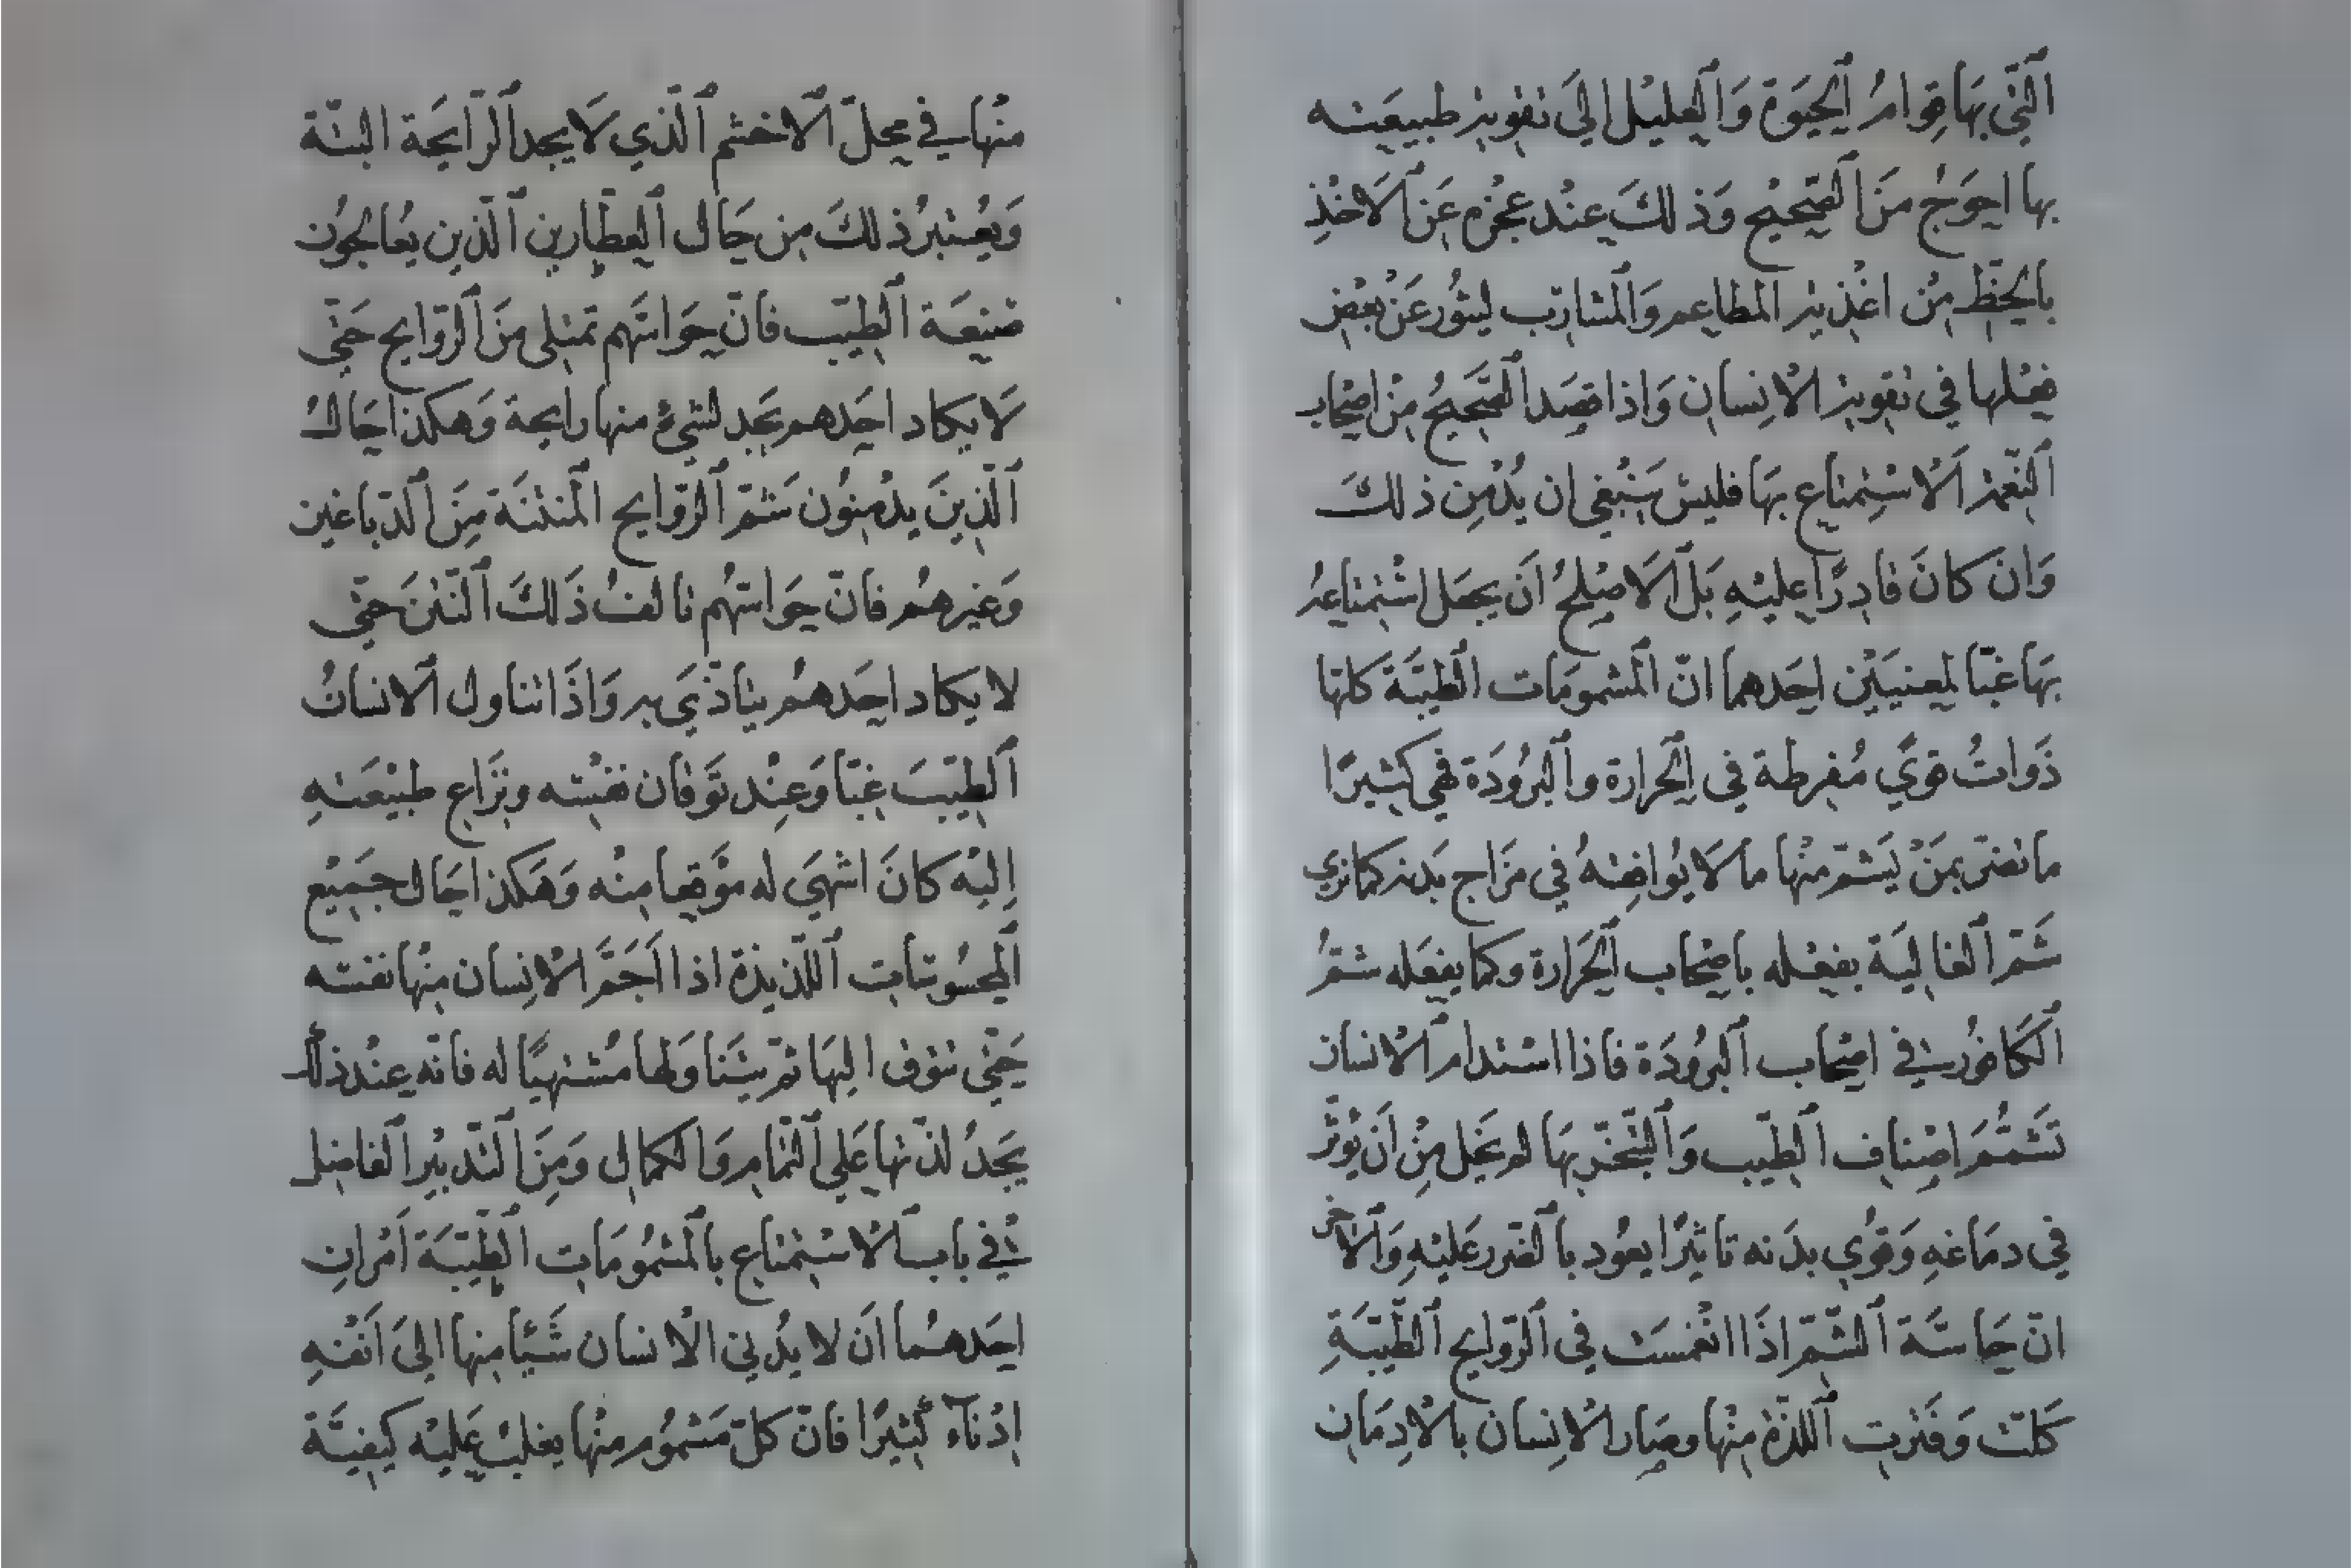 الّتي بهَا قِوامُ اَلحيَوة وَاَلعليل الىَ تقويته طبيعَته
بها احوَج مَنَ اَلصّحيْح وَذلكَ عنْد عجْزه عَن اَلاَخْذِ
بالحظّ مِنْ اغذية المطاعم وَاَلمشارب ليَنُوْر عَنْ بعْض
فعْلها في تقوية الاْنِسان وَاذا قصَد اَلصَّحيْحُ مِنْ اصْحاب
اَلنّعَمْ اَلاسْتِمتاع بهَا فليسَ ينْبغي ان يُدْمِن ذلكَ
وَانْ كانَ قادِرًا عليْهِ بَل اَلاَصْلحُ اَن يجعَل اسْتمتاعهُ
بهَا غبّا لمعنيَيْن احَدهما انّ اَلمشمومَات اَلطيّبَة كلّها
ذَواتُ قوىً مُفرطة في اِلحَرارة واَلبرُودَة فهي كثيرًا
ما تضرّ بمَنْ يَشمّ منْها ما لاَ يُوافِقهُ في مزَاج بَدنه كما نرى
شَمّ اَلغاليَة يفعْله باصْحاب اَلحَرارة وكما يفعَله شمُّ
اَلكَافُور في اصْحاب اَلبرُودَة فاذا استدام اَلاْنسان
تَشمُّمَ اصْناف اَلطّيب وَاَلتّبخّر بهَا لم يَخل مِنْ اَن يُوثّر
في دمَاغهِ وَقُوَى بدَنه تاثيْرًا يعُود باَلضّرر عَليْهِ وَاَلاخر
انّ حَاسَّة اَلشّمّ اذَا انْغمسَت في اَلرّوايح اَلطّيّبَةِ
كَلّتْ وَفَترَت اَللذّة منْها وصَار الاْنِسان بالاْدِمَان
منْها في محلّ اَلاخشم اَلّذي لاَ يجد اَلرّايحَة البتّة
وَيعُتبرُ ذلكَ مِن حَال اَلعطّارين اَلّذين يُعالجُون
صَنعَة اَلطيّب فانّ حوَاسّهم تمتلي منَ اَلرّوايح حَتّى
لاَ يكاد احَدهم يجَد لشيْءٍ منها رايحة وَهكذا حَالُ
اَلّذينَ يدْمنوُن شَمّ اَلرّوايح المنتنَة مِنَ اَلدّباغين
وَغيرهُم فانّ حوَاسّهُم تالفُ ذَلكَ اَلنّتنَ حَتّى
لا يكاد احَدهُم يتاذّىَ به وَاذَا تناول اَلانسانُ
اَلطيّبَ غبّا وَعِنْد تَوَقان نفْسه ونزَاع طبيْعَتهِ
اِليْه كانَ اشهىَ له مَوَقعا منْه وَهَكذا حَال جَميْع
اَلمحسُوسَات اَللّذيذة اذا اَجَمَّ الاْنِسان منْها نفسَه
حَتّى تتوق اليهَا ثمّ يَتنَاوَلها مُشتهيًا له فانّه عِنْد ذلك
يَجَدُ لذّتها عَلى اَلتّمام وَالكمال وَمِنَ اَلتّدبيْر اَلفاضل
في باب اَلاسْتمتاع باَلمشمُومَات اَلطّيّبَة اَمْرانِ
احَدهُما اَن لا يدُني الاْنسان شَيْئًا منها الىَ اَنفْهِ
ادْنآءً كثيرًا فانّ كلّ مَشمُوم منْها يغلبُ عَليْه كيفيَّة